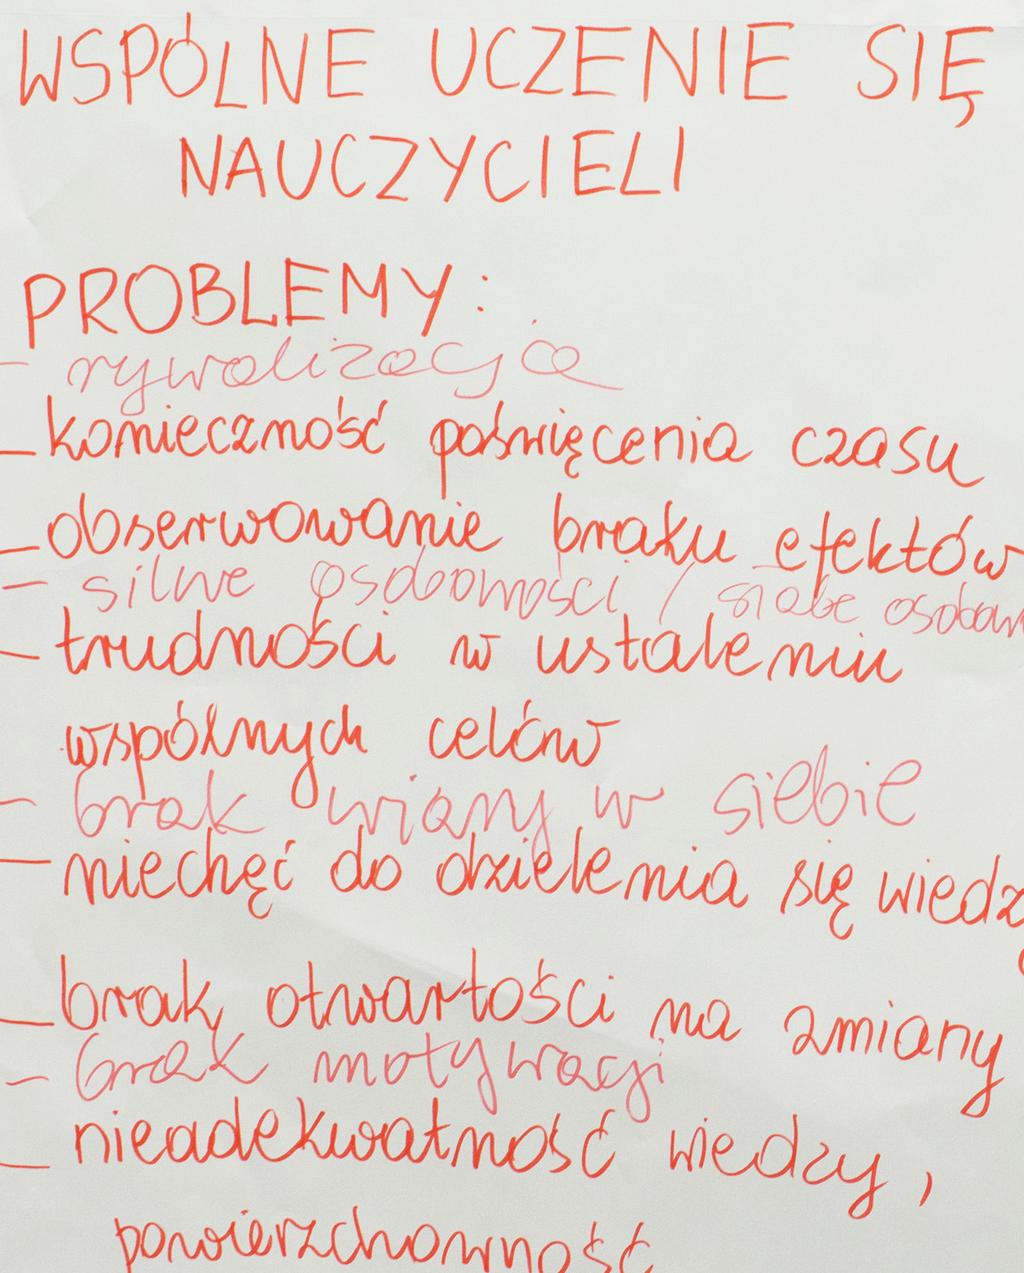 WSPÓLNE UCZENIE SIĘ
NAUCZYCIELI
PROBLEMY:
- rywalizacja
- konieczność poświęcenia czasu
- obserwowanie braku efektów
- silne osobowości / słabe
- trudności w ustaleniu
wspólnych celów
- brak wiary w siebie
- niechęć do dzielenia się
- brak otwartości na zmiany
- brak motywacji
- nieadekwatność wiedzy,
powierzchowność